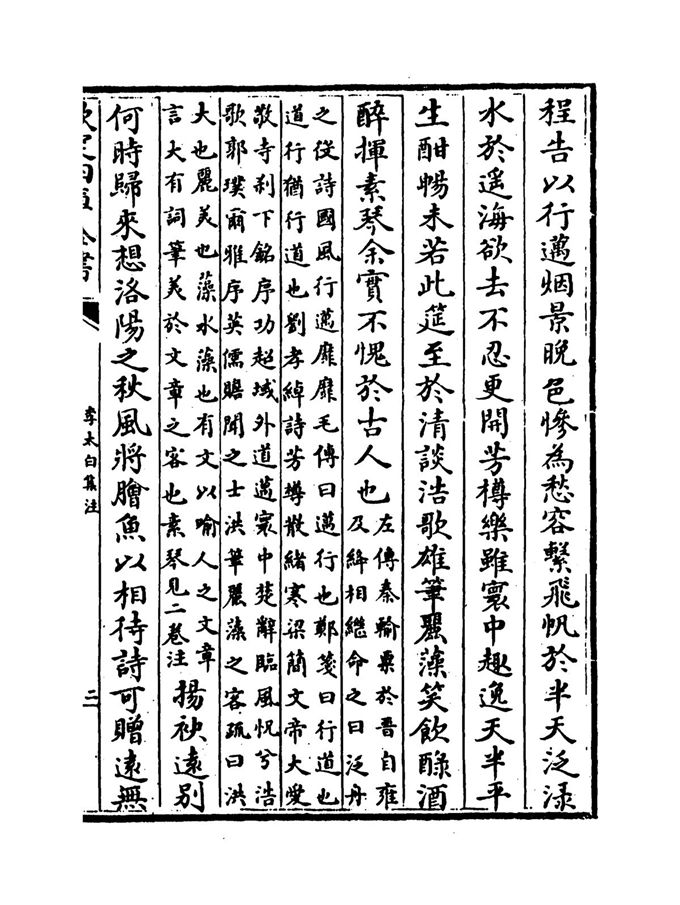 程告以行邁烟景晚色慘為愁容繫飛帆於半天泛渌
水於遥海欲去不忍更開芳樽樂雖寰中趣逸天半平
生酣暢未若此筵至於清談浩歌雄筆麗藻笑飲醁酒
醉揮素琴余實不愧於古人也
左傳秦輸粟於晉自雍
及絳相繼命之曰泛舟
之役詩國風行邁靡靡毛傳曰邁行也鄭箋曰行道也
道行猶行道也劉孝綽詩芳樽散緒寒梁簡文帝大愛
敬寺刹下銘序功超域外道邁寰中楚辭臨風怳兮浩
歌郭璞爾雅序英儒贍聞之士洪筆麗藻之客疏曰洪
大也麗美也藻水藻也有文以喻人之文章
言大有詞筆美於文章之客也素琴見二卷注
揚袂遠别
何時歸來想洛陽之秋風將膾魚以相待詩可贈遠無
欽定四庫全書
李太白集注
二